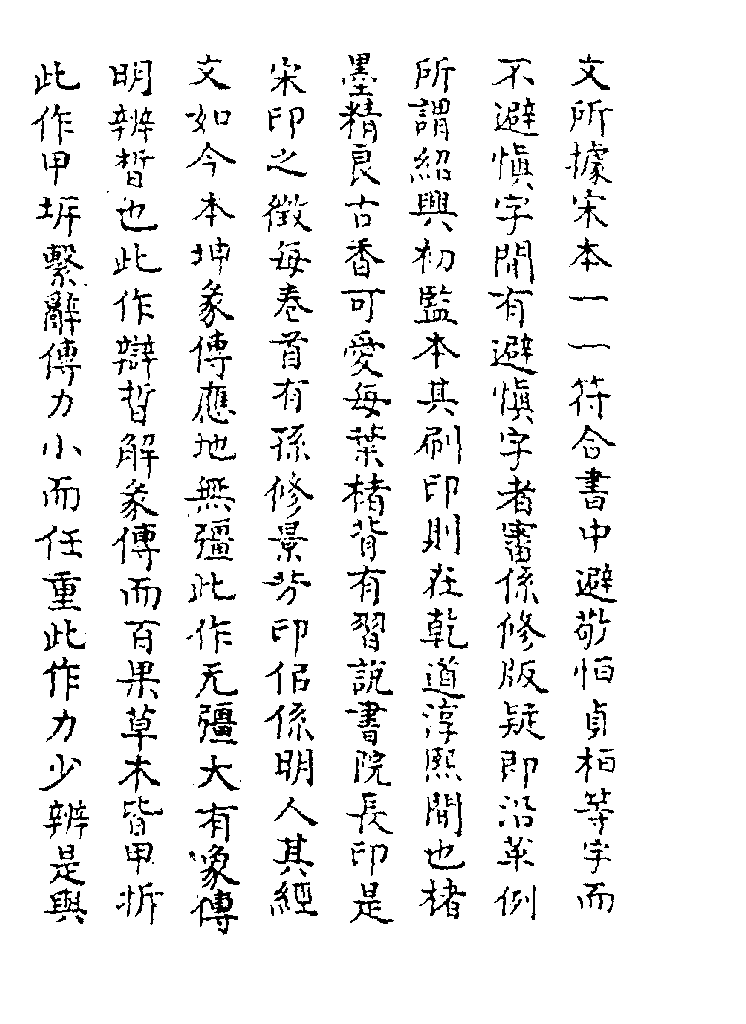 文所據宋本一一符合書中避敬怕貞栢等字而
不避愼字間有避愼字者審係修版疑即沿革例
所謂紹興初監本其刷印則在乾道淳熙間也楮
墨精良古香可愛每葉楮背有習說書院長印是
宋印之徵每卷首有孫修景芳印佀係明人其經
文如今本坤彖傳應地無彊此作无彊大有象傳
明辨晳也此作辯晢解彖傳而百果草木皆甲拆
此作甲坼繫辭傳力小而任重此作力少辨是與